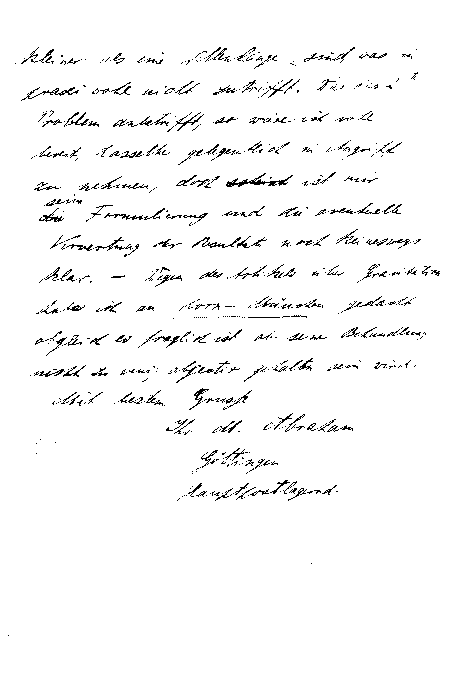 kleiner als eine Wellenlänge sind was in
praxi wohl nicht zutrifft. Was
Problem anbetrifft, so wäre ich wohl
bereit, dasselbe gelegentlich in Angriff
zu nehmen, doch scheint ist mir
seine
die Formulierung und die eventuelle
Verwertung der Resultate noch keineswegs
klar. — Wegen des Artikels über Gravitation
habe ich an Korn – München gedacht
obgleich es fraglich ist ob seine Behandlung
nicht zu wenig objectiv gehalten sein wird.
Mit besten Gruss
Ihr M. Abraham
Göttingen
hauptpostlagernd.